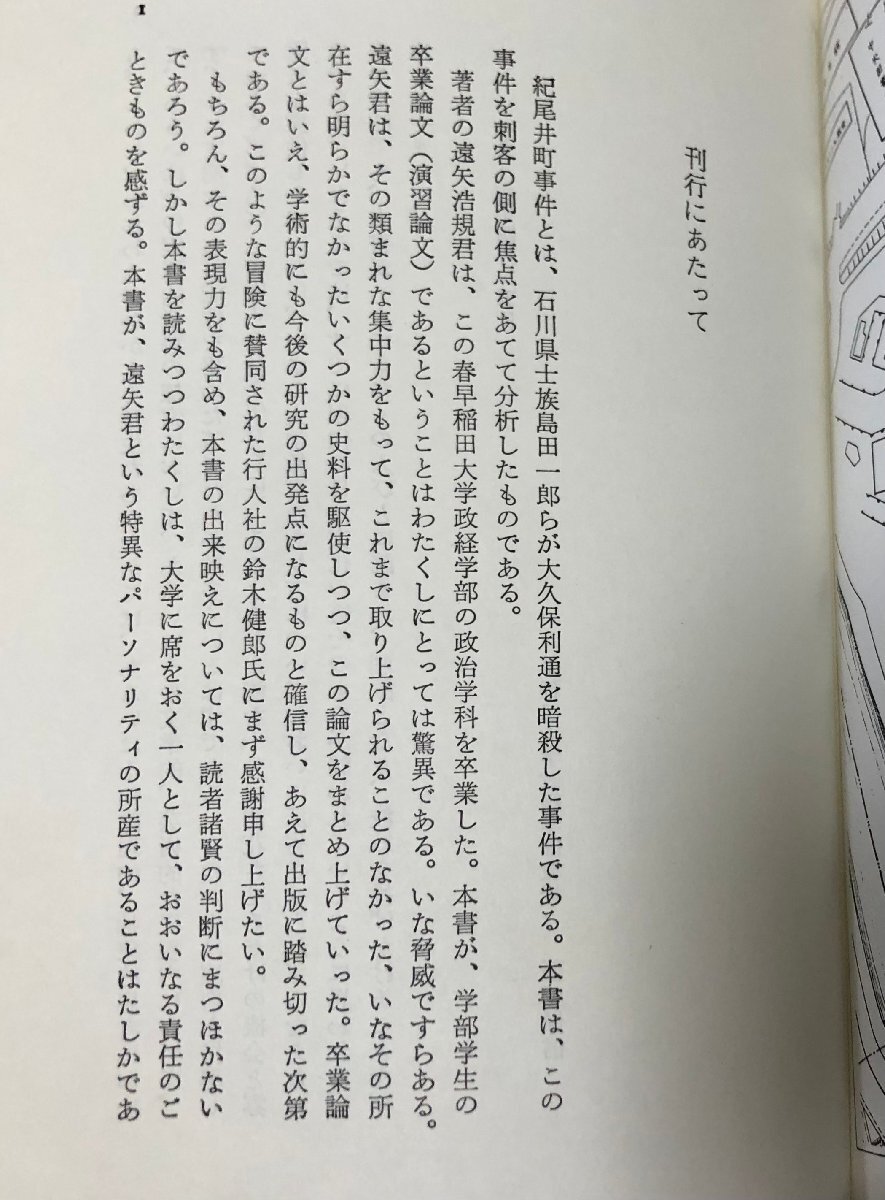 刊行にあたって
紀尾井町事件とは、石川県士族島田一郎らが大久保利通を暗殺した事件である。本書は、この
事件を刺客の側に焦点をあてて分析したものである。
著者の遠矢浩規君は、この春早稲田大学政経学部の政治学科を卒業した。本書が、学部学生の
卒業論文(演習論文)であるということはわたくしにとっては驚異である。いな脅威ですらある。
遠矢君は、その類まれな集中力をもって、これまで取り上げられることのなかった、いなその所
在すら明らかでなかったいくつかの史料を駆使しつつ、この論文をまとめ上げていった。卒業論
文とはいえ、学術的にも今後の研究の出発点になるものと確信し、あえて出版に踏み切った次第
である。このような冒険に賛同された行人社の鈴木健郎氏にまず感謝申し上げたい。
もちろん、その表現力をも含め、本書の出来映えについては、読者諸賢の判断にまつほかない
であろう。しかし本書を読みつつわたくしは、大学に席をおく一人として、おおいなる責任のご
ときものを感ずる。本書が、遠矢君という特異なパーソナリティの所産であることはたしかであ
1